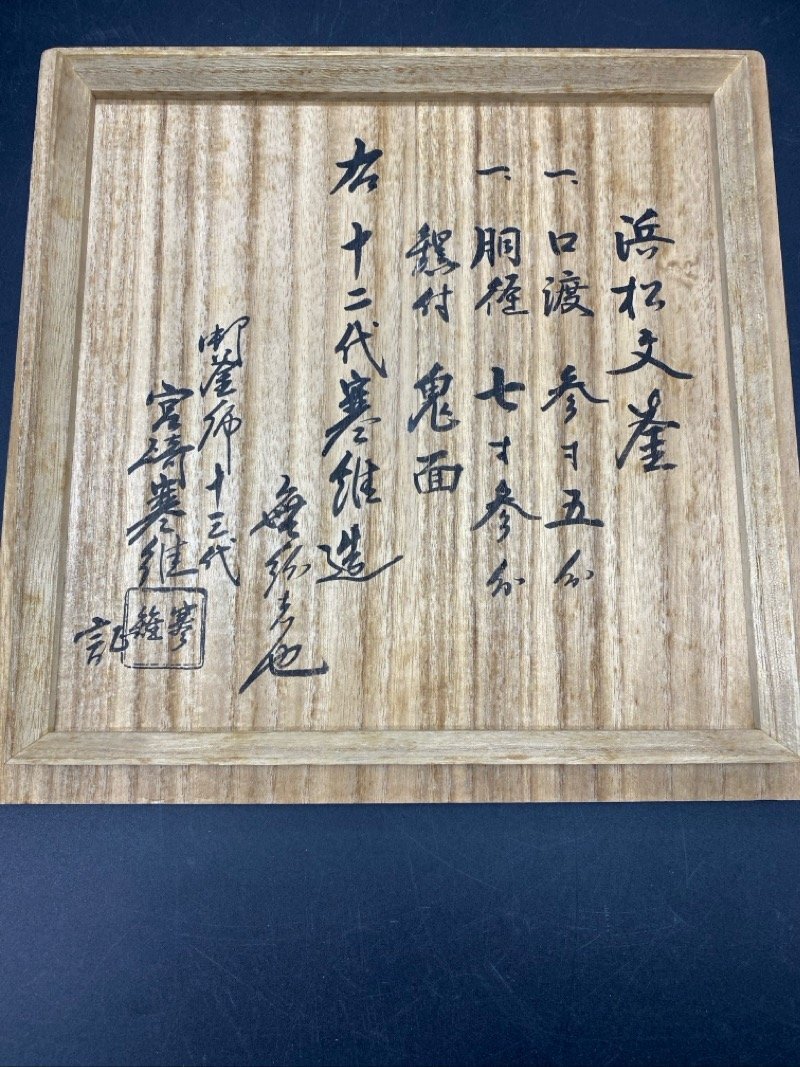 浜松文釜
一、口渡 参寸五分
一、胴径 七寸参分
鐶付 鬼面
右 十二代寒雉造
無紛者也
御釜師十三代
宮﨑寒雉
寒雉
記